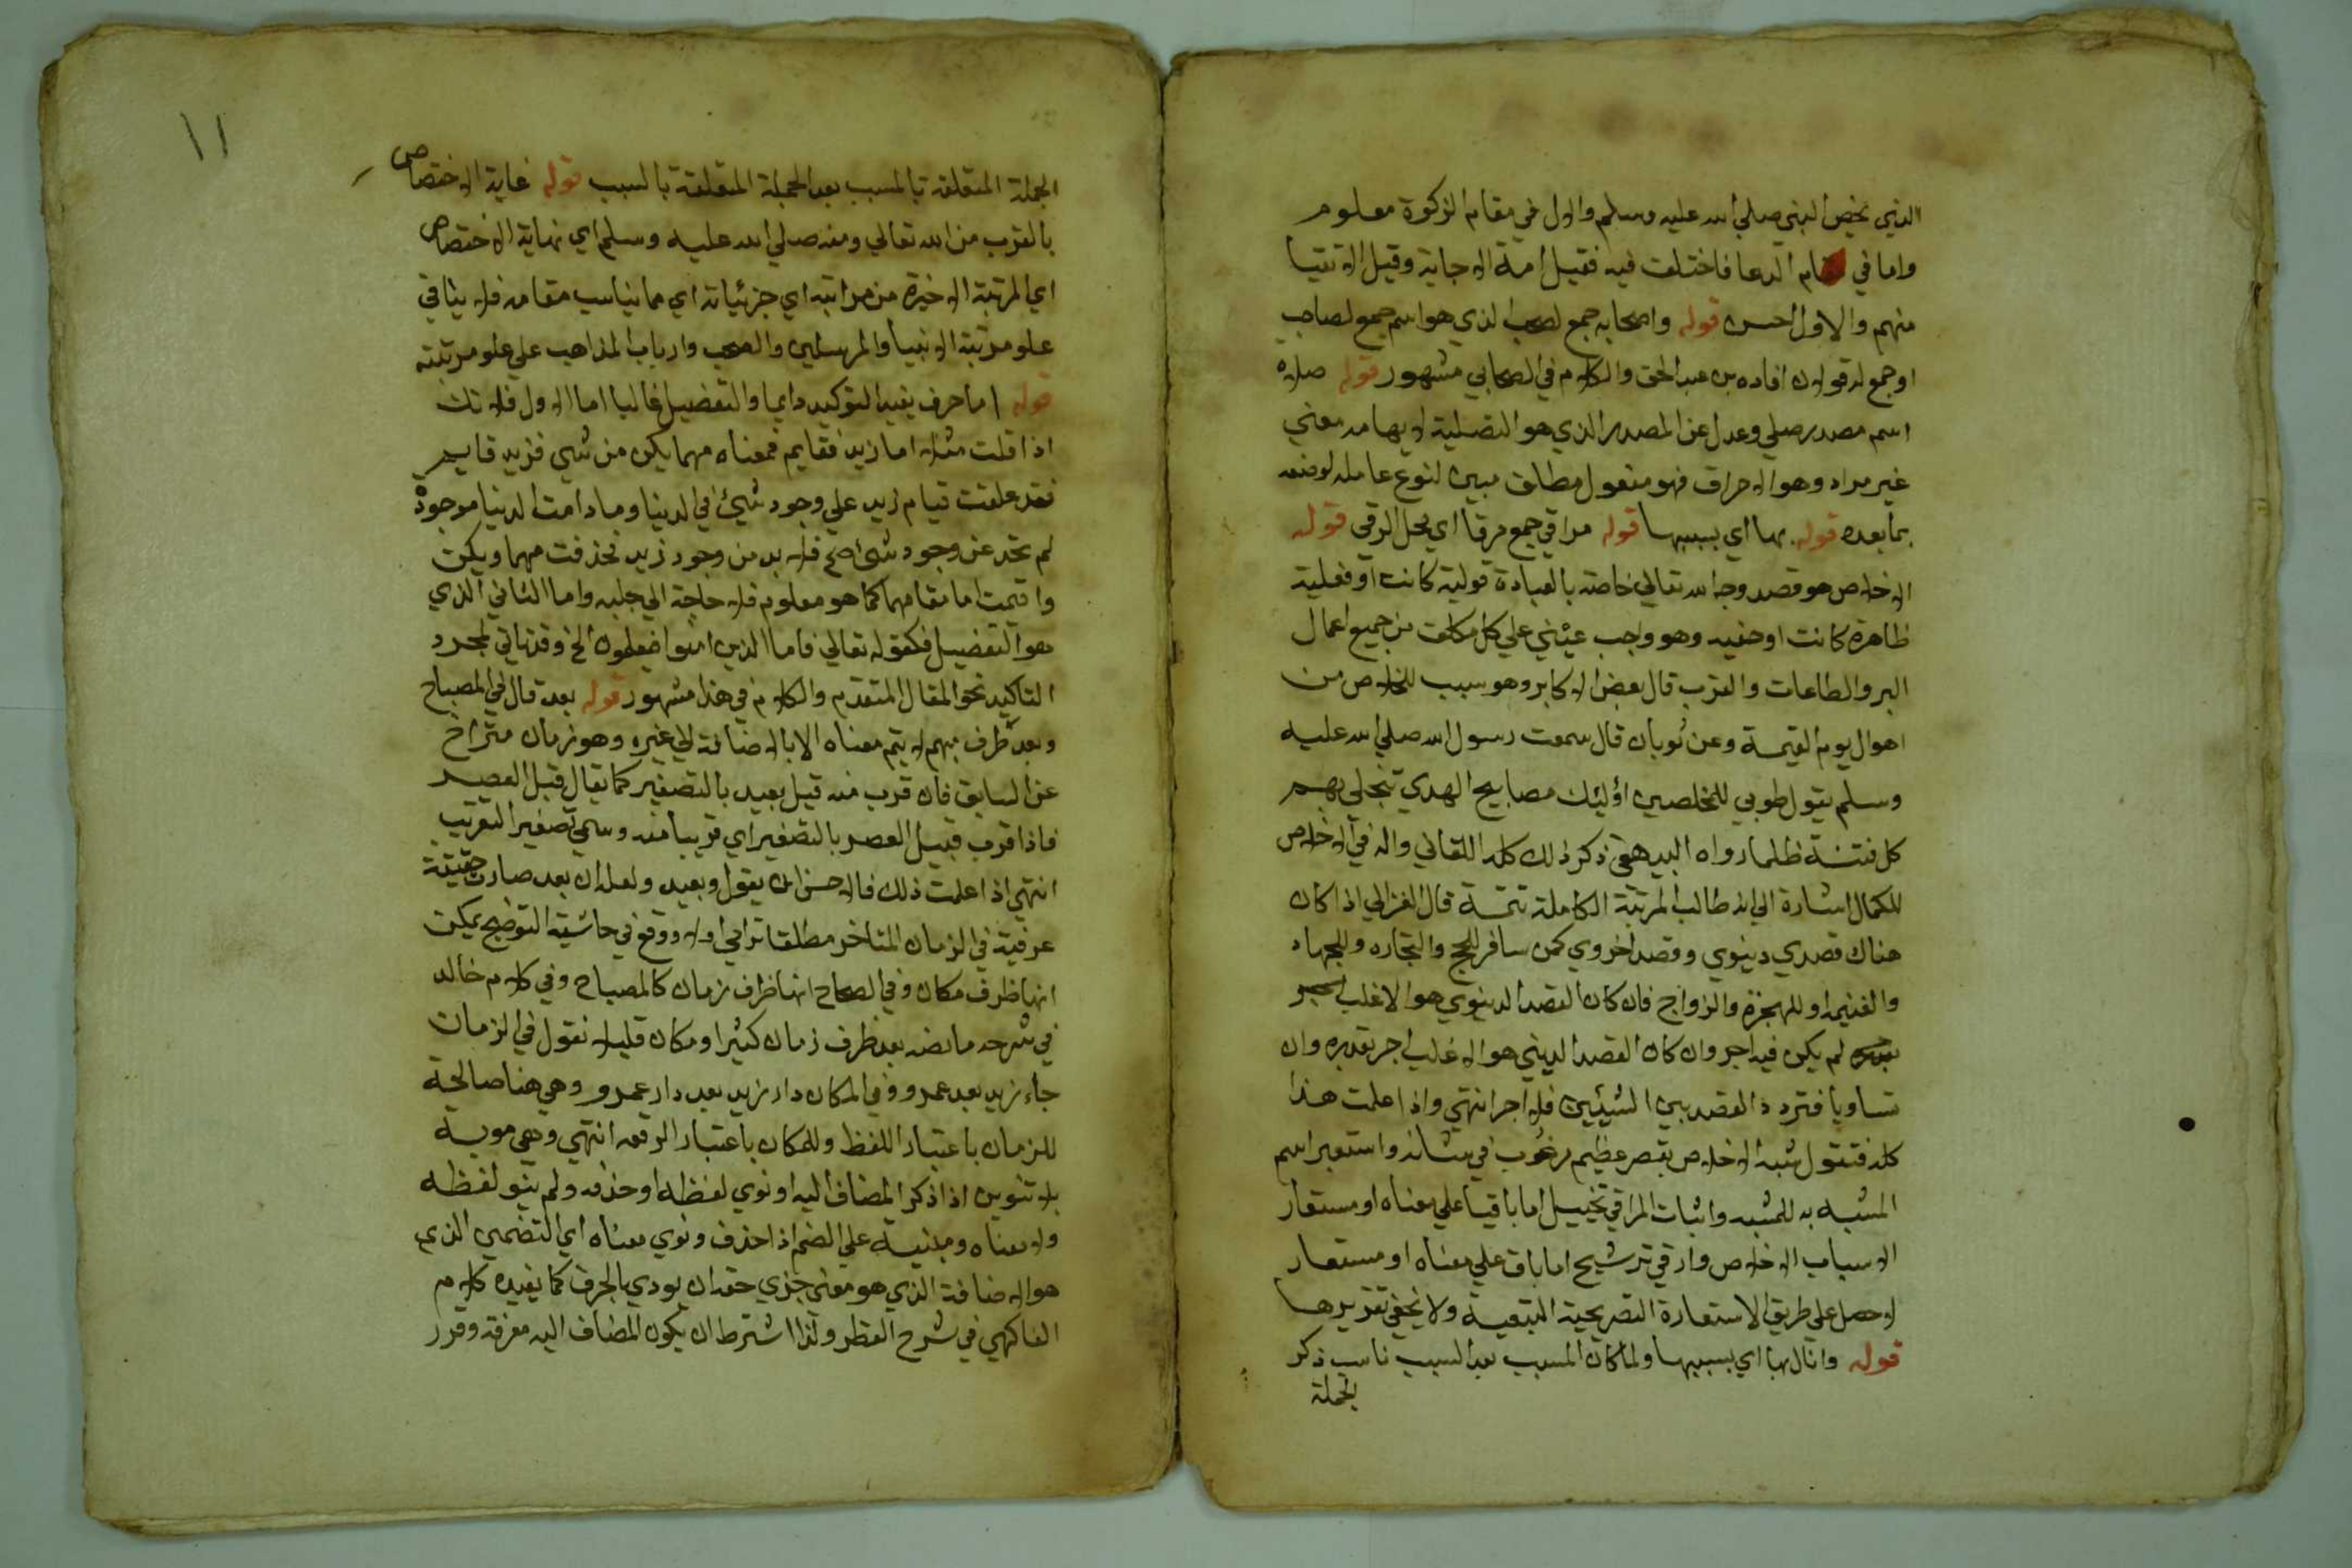 الذي يخص النبي صلي الله عليه وسلم والاول في مقام الزكوة معلوم
واما في مقام الدعا فاختلف فيه فقيل امة الاجابة وقيل الاتقيا
منهم والاول احسن قوله واصحابه جمع لصحب الذي هو اسم جمع لصاحب
او جمع له قولان افاده بن عبد الحق والكلام في الصحابي مشهور قوله صلاه
اسم مصدر صلي وعدل عن المصدر الذي هو التصلية لايهامه معني
غير مراد وهو الاحراق فهو مفعول مطلق مبين لنوع عامله لوضعه
بما بعده قوله بها اي بسببها قوله مراقي جمع مرقا اي محل الرقي قوله
الاخلاص هو قصد وجه الله تعالي خاصة بالعبادة قولية كانت او فعلية
ظاهرة كانت او خفيه وهو واجب عيني علي كل مكلف من جميع اعمال
البر والطاعات والقرب قال بعض الاكابر وهو سبب للخلاص من
اهوال يوم القيمة وعن ثوبان قال سمعت رسول الله صلي الله عليه
وسلم يقول طوبي للمخلصين اؤليئك مصابيح الهدي تنجلي بهم
كل فتنة ظلما رواه البيهقي ذكر ذلك كله اللقاني وال في الاخلاص
للكمال اشارة الي انه طالب المرتبة الكاملة تتمة قال الغزالي اذا كان
هناك قصدي دينوي وقصد اخروي كمن سافر للحج والتجاره وللجهاد
والغنيمه او للهجرة والزواج فان كان القصد الدينوي هو الاغلب
لم يكن فيه اجر وان كان القصد الديني هو الاغلب اجر بقدره وان
تساويا فتردد القصد بين الشيئين فلا اجر انتهي واذا علمت هذا
كله فتقول شبه الاخلاص بقصر عظيم مرغوب في شانه واستعير اسم
المشبه به للمشبه واثبات المراقي تخييل اما باقيا علي معناه او مستعار
الاسباب الاخلاص وارقي ترشيح اما باق علي معناه او مستعار
لاحصل علي طريق الاستعارة التصريحية التبعية ولا يخفي تقريرها
قوله وانال بها اي بسببها ولما كان المسبب بعد السبب ناسب ذكر
الجملة
١١
الجملة المتعلقة بالمسبب بعد الجملة المتعلقة بالسبب قوله غاية الاختصاص
بالقرب من الله تعالي ومنه صلي الله عليه وسلم اي نهاية الاختصاص
اي المرتبة الاخيرة من مراتبه اي جزئياته اي مما يناسب مقامه فلا ينافي
علو مرتبة الانبيا والمرسلين والصحب وارباب المذاهب علي علو مرتبته
قوله اما حرف يفيد التوكيد دايما والتفضيل غالبا اما الاول فلانك
اذا قلت مثلا اما زيد فقايم فمعناه مهما يكن من شي فزيد قايم
فقد علقت قيام زيد علي وجود شيئ في الدنيا وما دامت الدنيا موجودة
لم تخد عن وجود شئ صح فلا بد من وجود زيد فحذفت مهما ويكن
واقيمت اما مقامهما كما هو معلوم فلا حاجة الي جلبه واما الثاني الذي
هو التفضيل فكقوله تعالي فاما الذين امنوا فيعلمون الخ وقد تاتي لمجرد
التاكيد نحو المقال المتقدم والكلام في هذا مشهور قوله بعد قال في المصباح
وبعد ظرف مبهم لا يتم معناه الا بالاضافة الي غيره وهو زمان متراخ
عن السابق فان قرب منه قيل بعيد بالتصغير كما يقال قبل العصر
فاذا قرب قبيل العصر بالتصغير اي قريبا منه وسمي تصغير التقريب
انتهي اذا علمت ذلك فالاحسن ان يقول وبعيد ولعله ان بعد صارت حقيقة
عرفية في الزمان المتاخر مطلقا تراخي اولا ووقع في حاشية التوضيح يمكن
انها ظرف مكان وفي الصحاح انها ظرف زمان كالمصباح وفي كلام خالد
في شرحه ما نصه بعد ظرف زمان كثيرا ومكان قليلا نقول في الزمان
جاء زيد بعد عمرو وفي المكان دار زيد بعد دار عمرو وهي هنا صالحة
للزمان باعتبار اللفظ وللمكان باعتبار الرقم انتهي وهي معربة
بلا تنوين اذا ذكر المضاف اليه او نوي لفظه او حذف ولم ينو لفظه
ولا معناه ومبنية علي الضم اذا حذف ونوي معناه اي التضمني الذي
هو الاضافة الذي هو معني جزي حقه ان يودي بالحرف كما يفيده كلام
الفاكهي في شرح القطر ولذا اشترط ان يكون المضاف اليه معرفة وقرر